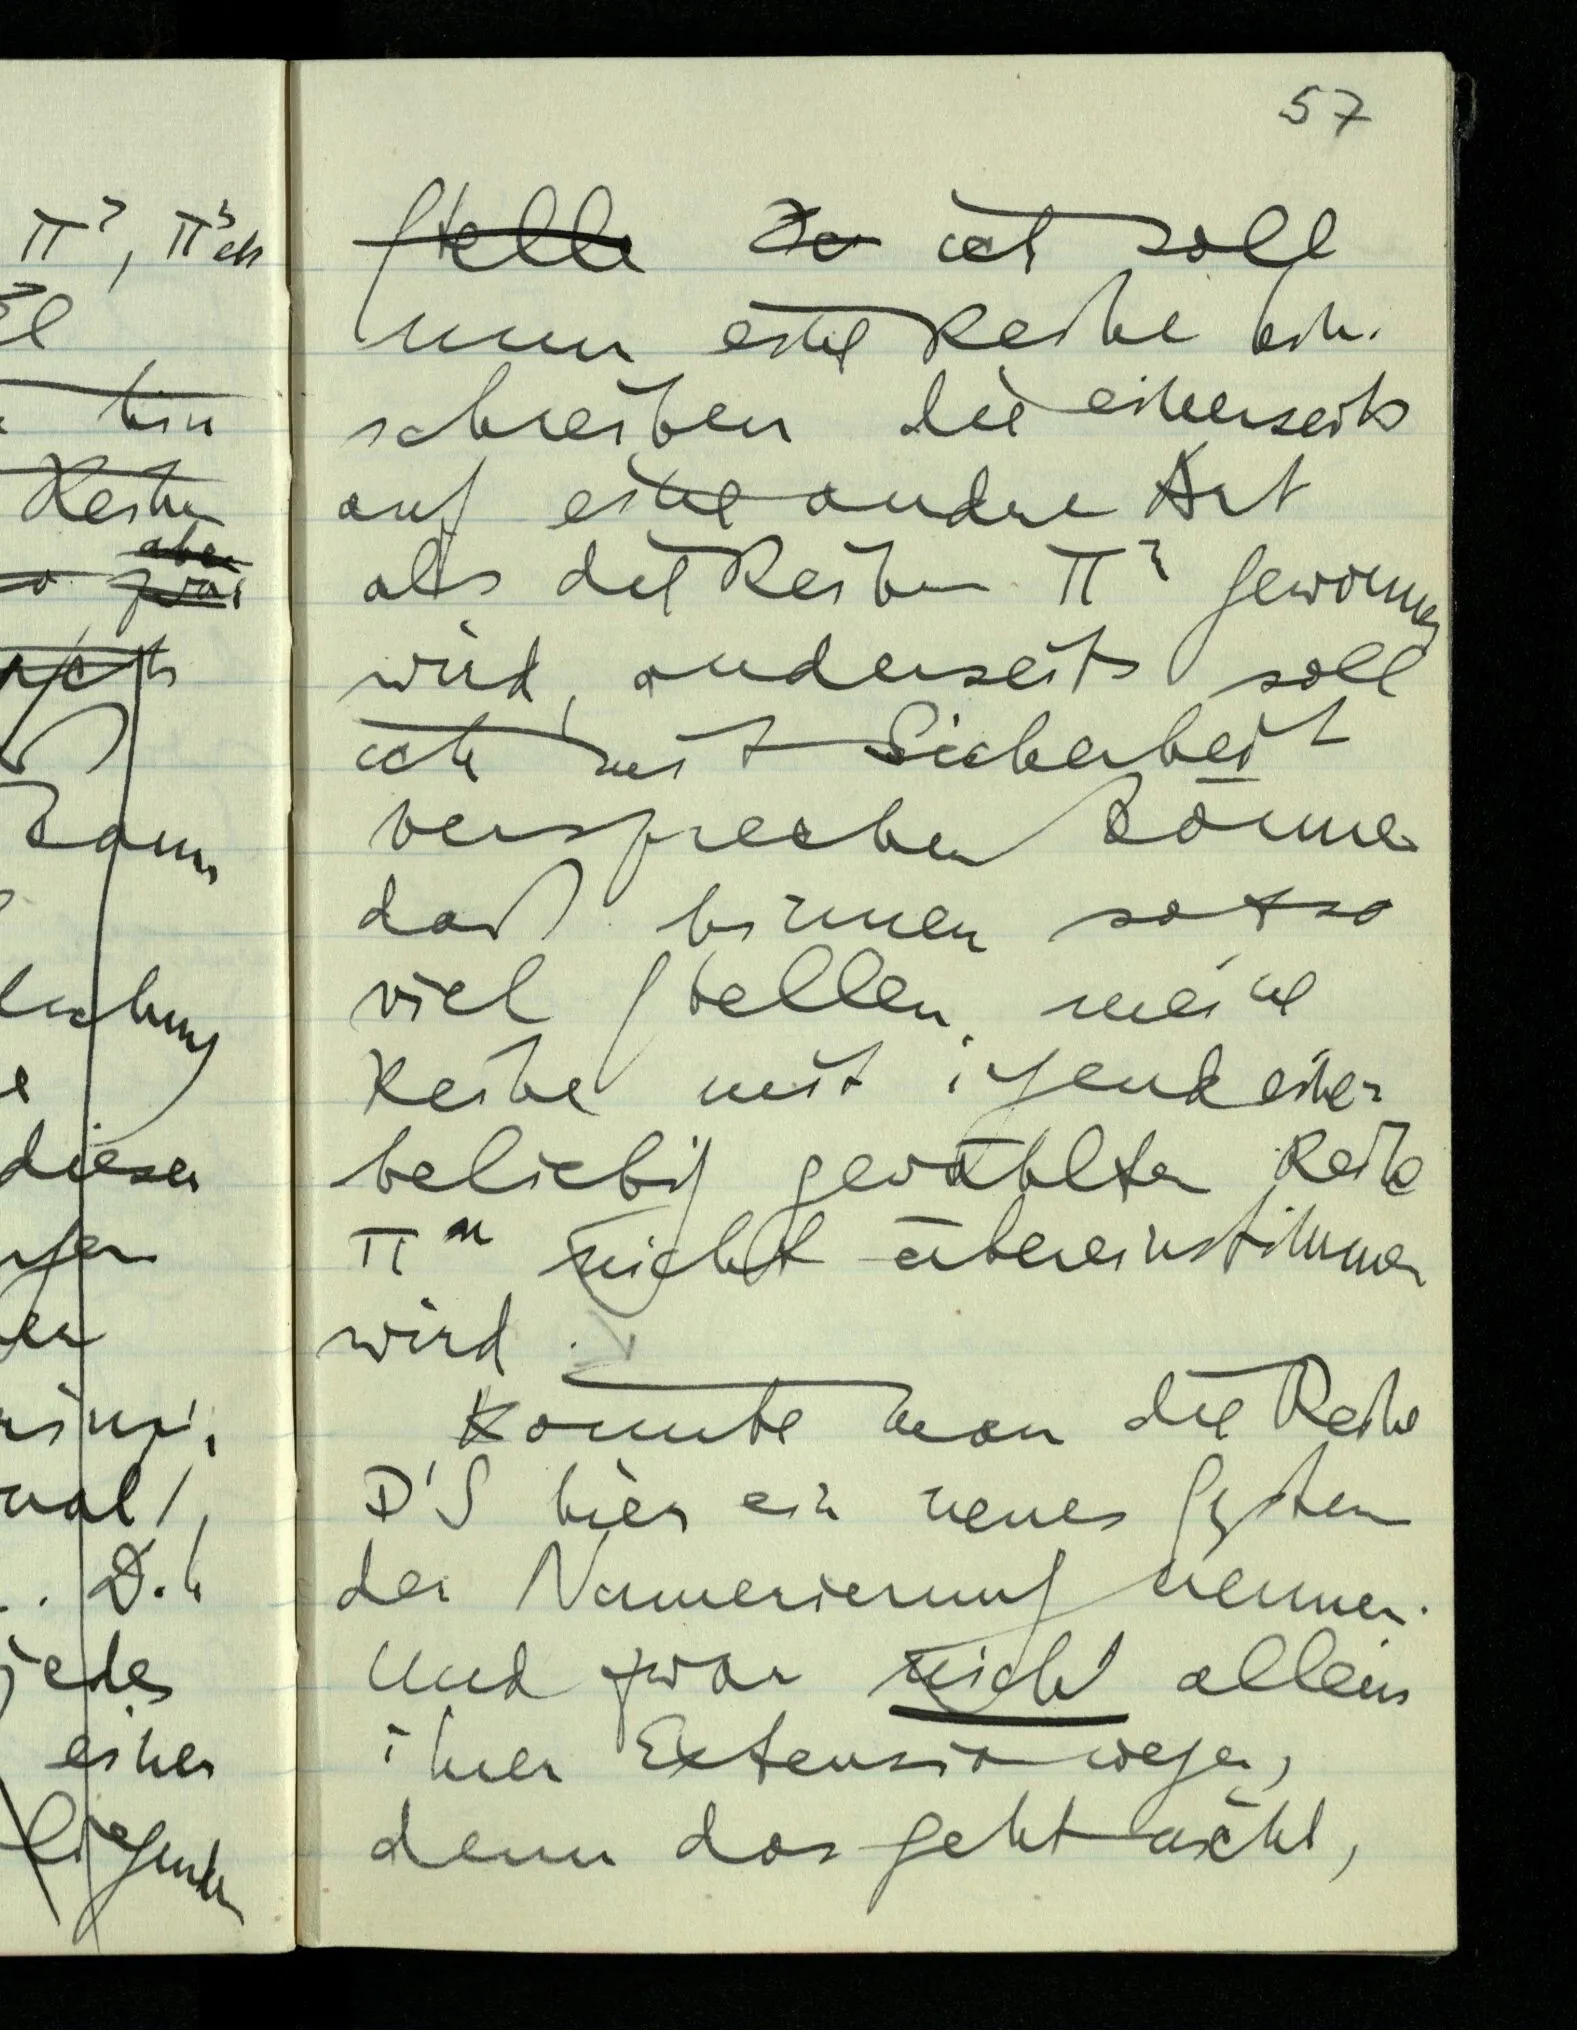 57
Stelle Der ich soll
nun eine Reihe hin
schreiben die einerseits
auf eine andere Art
als die Reihen π² gewonnen
wird, anderseits soll
ich mit Sicherheit
versprechen können
daß binnen so & so
viel Stellen meine
Reihe mit irgend einer
beliebig gewählten Reihe
πⁿ nicht übereinstimmen
wird.
Könnte man die Reihe
D'S hier ein neues System
der Numerierung nennen.
Und zwar nicht allein
ihrer Extension wegen,
denn das geht nicht,
π², π³
hin
Reihen
aber
zwar
dieser
D.h
jedes
einer
liegenden